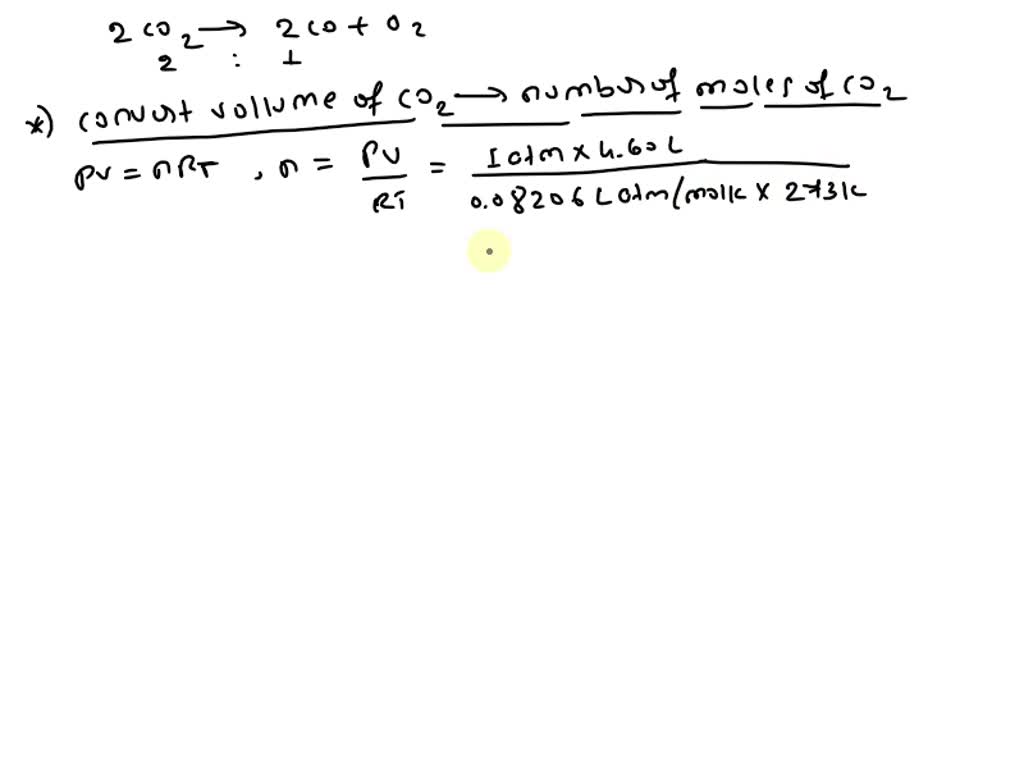 2 CO2 → 2 CO + O2
2 : 1
*) convert vollume of CO2 → number of moles of CO2
PV = nRT , n = PV / RT = 1 atm × 4.60 L / 0.08206 L atm/mol k × 273 k